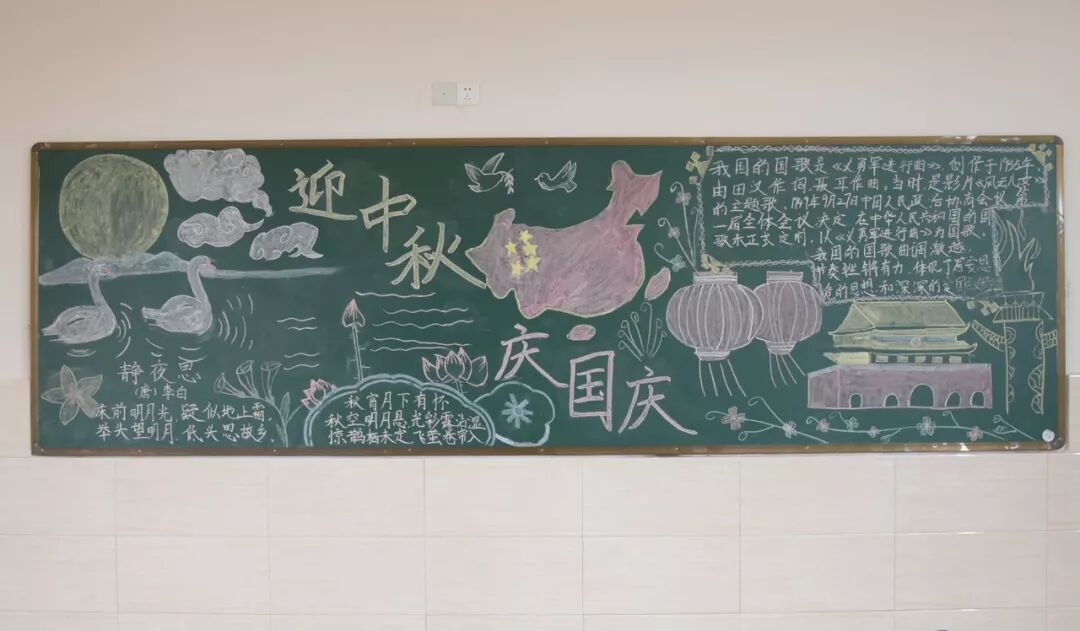 迎中秋
庆国庆
静夜思
(唐)李白
床前明月光,疑似地上霜.
举头望明月,低头思故乡.
秋宵月下有怀
秋空明月悬,光彩露沾湿
惊鹊栖未定,飞萤卷帘入
我国的国歌是《义勇军进行曲》,创作于1935年
由田汉作词,聂耳作曲.当时是影片《风云儿女》
的主题歌,1949年9月27日中国人民政治协商会议第
一届全体会议决定,在中华人民共和国的国
歌未正式定前,以《义勇军进行曲》为国歌.
我国的国歌曲调激越
节奏铿锵有力,体现了居安思
危的思想和深深的